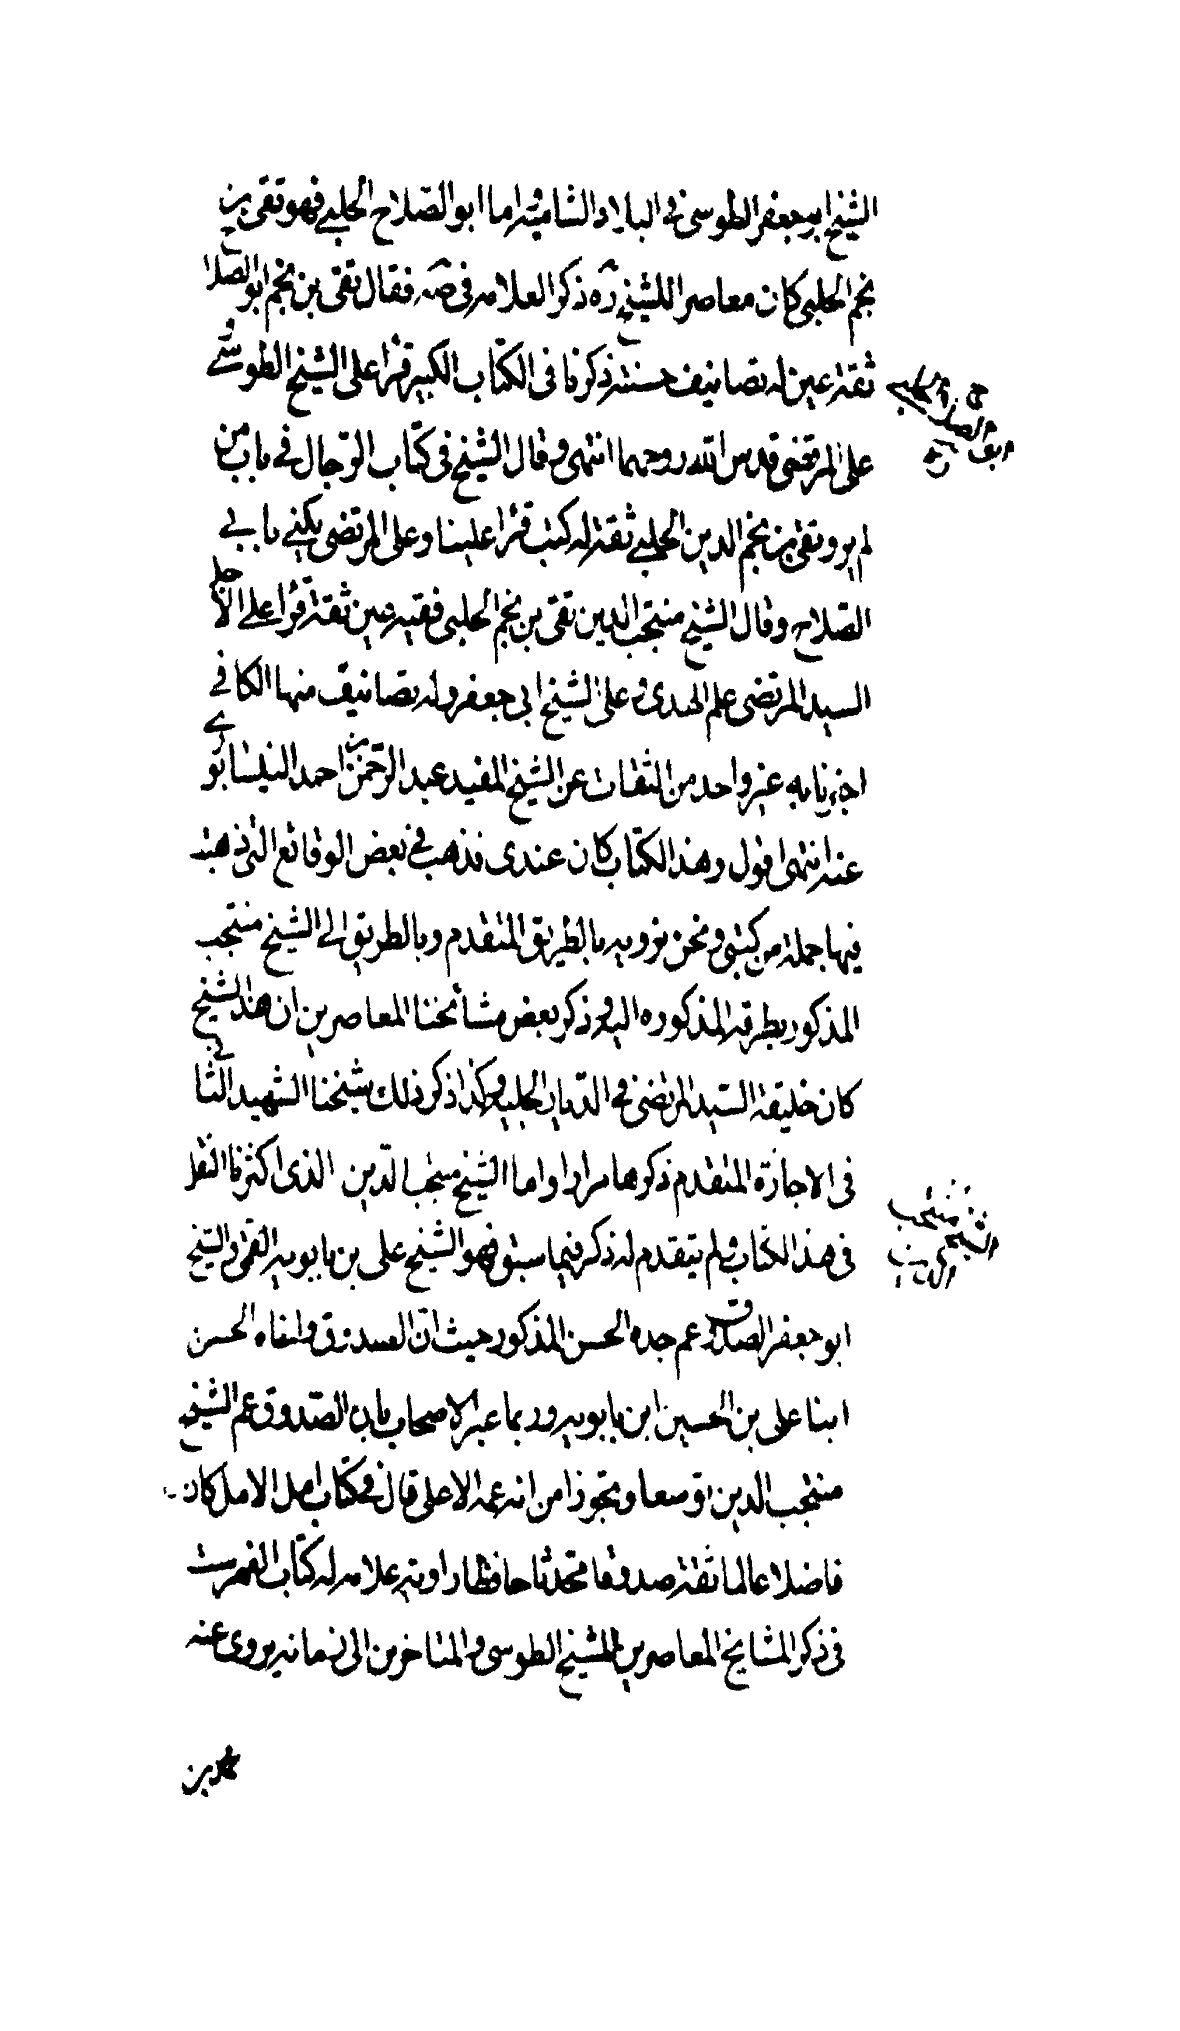 الشيخ ابو جعفر الطوسى فى البلاد الشامية واما ابو الصلاح الحلبى فهو تقى بن
نجم الحلبى كان معاصرا للشيخ ره ذكر العلامه فى صه فقال تقى بن نجم ابو الصلاح
ثقة عين له تصانيف حسنة ذكرنا فى الكتاب الكبير قرأ على الشيخ الطوسى و
على المرتضى قدس الله روحهما انتهى وقال الشيخ فى كتاب الرجال فى باب من
لم يرو تقى بن نجم الدين الحلبى ثقة له كتب قرأ علينا وعلى المرتضى يكنى بابى
الصلاح وقال الشيخ منتجب الدين تقى بن نجم الحلبى فقيه عين ثقة قرأ على الاجل
السيد المرتضى علم الهدى وعلى الشيخ ابى جعفر وله تصانيف منها الكافى
اخبرنا به غير واحد من الثقات عن الشيخ المفيد عبد الرحمن بن احمد النيسابورى
عنه انتهى اقول وهذا الكتاب كان عندى فذهب فى بعض الوقائع التى ذهبت
فيها جملة من كتبى ونحن نرويه بالطريق المتقدم وبالطريق الى الشيخ منتجب
المذكور بطرقه المذكوره اليه وذكر بعض مشائخنا المعاصرين ان هذا الشيخ
كان خليفة السيد المرتضى فى الديار الحلبيه وكذا ذكر ذلك شيخنا الشهيد الثانى
فى الاجازة المتقدم ذكرها مرارا واما الشيخ منتجب الدين الذى اكثرنا النقل
فى هذا الكتاب ولم يتقدم له ذكر فيما سبق فهو الشيخ على بن بابويه القمى والشيخ
ابو جعفر الصدوق عم جده الحسن المذكور حيث ان الصدوق واخاه الحسن
ابنا على بن الحسين ابن بابويه وربما عبر الاصحاب بان الصدوق عم الشيخ
منتجب الدين توسعا وتجوزا من انه عمه الاعلى قال فى كتاب امل الامل كان
فاضلا عالما ثقة صدوقا محدثا حافظا راوية علامه له كتاب الفهرست
فى ذكر المشايخ المعاصرين للشيخ الطوسى والمتاخرين الى زمانه يروى عنه
ابو الصلاح الحلبى
الشيخ منتجب
الدين